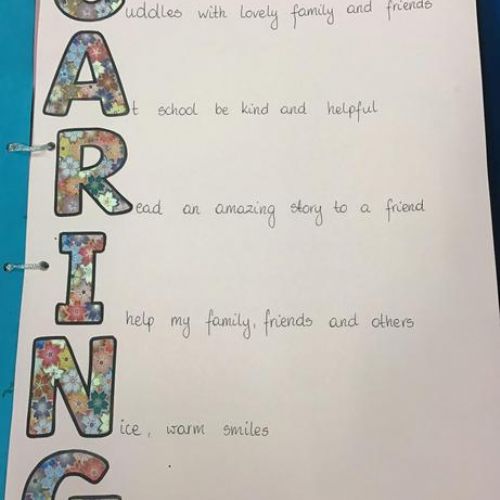 Cuddles with lovely family and friends
At school be kind and helpful
Read an amazing story to a friend
I help my family, friends and others
Nice, warm smiles
G